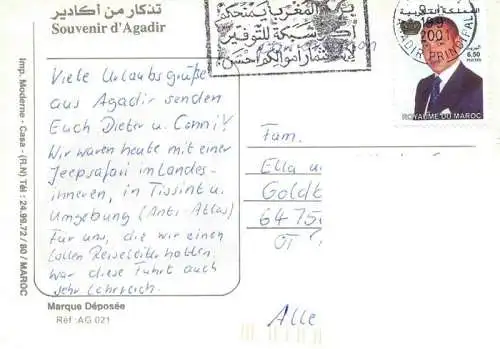 تذكار من أكادير
Souvenir d'Agadir
Viele Urlaubsgrüße
aus Agadir senden
Euch Dieter u. Conni!
Wir waren heute mit einer
Jeepsafari im Landes-
inneren, in Tissint u.
Umgebung (Anti-Atlas)
Für uns, die wir einen
tollen Reiseleiter hatten,
war diese Fahrt auch
sehr lehrreich.
Marque Déposée
Réf : AG 021
Imp. Moderne - Casa - (R.N) Tél : 24.99.72 / 80 / MAROC
المملكة المغربية
6,50
POSTES
ROYAUME DU MAROC
2001
AGADIR PRINCIPAL
بريد المغرب يمنحكم
أكبر شبكة للتوفير
لاستثمار أموالكم أحسن
Fam.
Ella u
Goldb
6475
OT
Alle